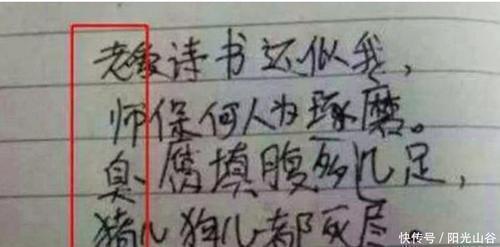 老髮诗书还似我，
师保何人为琢磨。
臭腐填腹多儿足，
猪儿狗儿都死尽。
快传号／阳光山谷